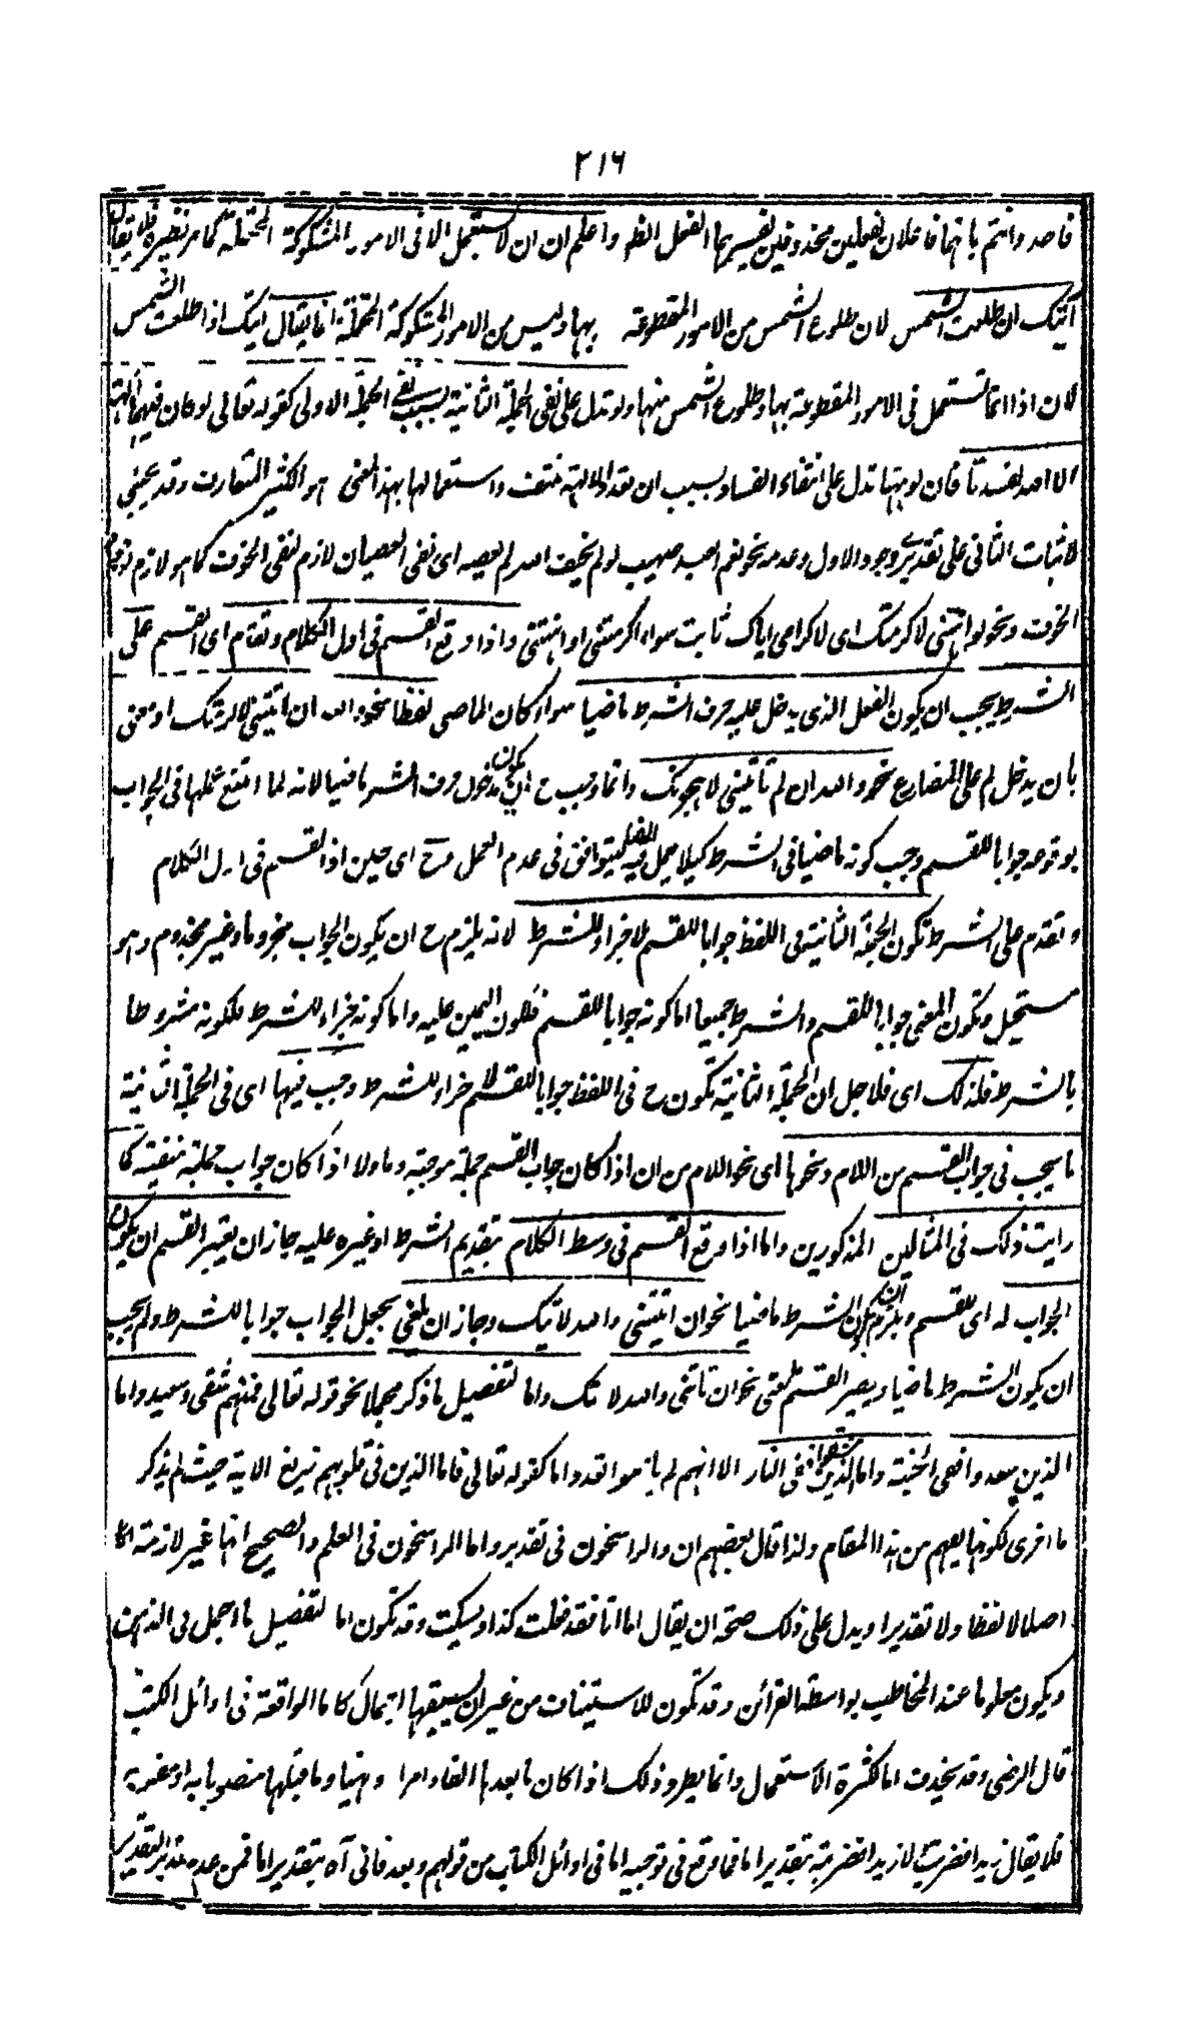 ٢١٦
فاحد وانتم بانهما فاعلان لفعلين محذوفين يفسرهما الفعل الظ واعلم ان ان لا يستعمل الا فى الامور المشكوكة المحتملة كما مر نظيره فلا يقال
آتيك ان طلعت الشمس لان طلوع الشمس من الامور المقطوعة بها وليس من الامور المشكوكة المحتملة انما يقال آتيك اذا طلعت الشمس
لان اذا انما تستعمل فى الامور المقطوعة بها وطلوع الشمس منها ولو تدل على نفى الجملة الثانية بسبب نفى الجملة الاولى كقوله تعالى لو كان فيهما آلهة
الا الله لفسدتا فان لو ههنا تدل على انتفاء الفساد بسبب ان تعدد الالهة منتف واستعمالها بهذا المعنى هو الكثير المتعارف وقد يجئ
لاثبات الثانى على تقدير وجود الاول وعدمه نحو نعم العبد صهيب لو لم يخف الله لم يعصه اى نفى العصيان لازم لنفى الخوف كما هو لازم لوجود
الخوف ونحو لو اهنتنى لاكرمتك اى لاكرامى اياك ثابت سواء اكرمتنى او اهنتنى واذا وقع القسم فى اول الكلام وتقدم اى القسم على
الشرط يجب ان يكون الفعل الذى يدخل عليه حرف الشرط ماضيا سواء كان الماضى لفظا نحو والله ان اتيتنى لاكرمتك او معنى
بان يدخل لم على المضارع نحو والله ان لم تأتينى لاهجونك وانما وجب ح ان يكون مدخول حرف الشرط ماضيا لانه لما امتنع عملها فى الجواب
بوقوعه جوابا للقسم وجب كونه ماضيا فى الشرط كيلا يعمل فيه ليتوافق فى عدم العمل وح اى حين اذا القسم فى اول الكلام
وتقدم على الشرط تكون الجملة الثانية فى اللفظ جوابا للقسم لا جزاء للشرط لانه يلزم ح ان يكون الجواب مجزوما وغير مجزوم وهو
مستحيل وتكون المعنى جوابا للقسم والشرط جميعا اما كونه جوابا للقسم فلكون اليمين عليه واما كونه جزاء للشرط فلكونه مشروطا
بالشرط فلذلك اى فلاجل ان الجملة الثانية تكون ح فى اللفظ جوابا للقسم لا جزاء للشرط وجب فيها اى فى الجملة الثانية
ما يجب فى جواب القسم من اللام ونحوها اى نحو اللام من ان اذا كان جواب القسم جملة موجبة وما ولا اذا كان جوابه جملة منفية كما
رايت ذلك فى المثالين المذكورين واما اذا وقع القسم فى وسط الكلام بتقديم الشرط او غيره عليه جاز ان يعتبر القسم ان يكون
الجواب له اى للقسم ويلزم ان يكون الشرط ماضيا نحو ان اتيتنى والله لآتيك وجاز ان يلغى بجعل الجواب جوابا للشرط ولم يجب
ان يكون الشرط ماضيا ويصير القسم ملغى نحو ان تاتنى والله لا تك واما لتفصيل ما ذكر مجملا نحو قوله تعالى فمنهم شقى وسعيد واما
الذين سعدوا ففى الجنة واما الذين شقوا ففى النار الا انهم لم يلتزموا تعدد اما كقوله تعالى فاما الذين فى قلوبهم زيغ الاية حيث لم يذكر
ما اخرى لكونها يعهم من هذا المقام ولذا قال بعضهم ان والراسخون فى تقدير واما الراسخون فى العلم والصحيح انها غير لازمة لها
اصلا لا لفظا ولا تقديرا ويدل على ذلك صحة ان يقال اما انا فقد فعلت كذا ويسكت وقد تكون اما لتفصيل ما اجمل فى الذهن
ويكون معلوما عند المخاطب بواسطة القرائن وقد تكون للاستيناف من غير ان يسبقها اجمال كاما الواقعة فى اوائل الكتب
قال الرضى وقد يحذف اما لكثرة الاستعمال وانما يطرد ذلك اذا كان ما بعدها الفاء امرا ونهيا وما قبلها منصوبا به او مفسره
فلا يقال زيدا فضربت لا زيدا فضربته بتقدير اما فما وقع فى توجيه اما فى اوائل الكتاب من قولهم وبعد فانى آه بتقدير اما فمن عدم تدبر التقدير